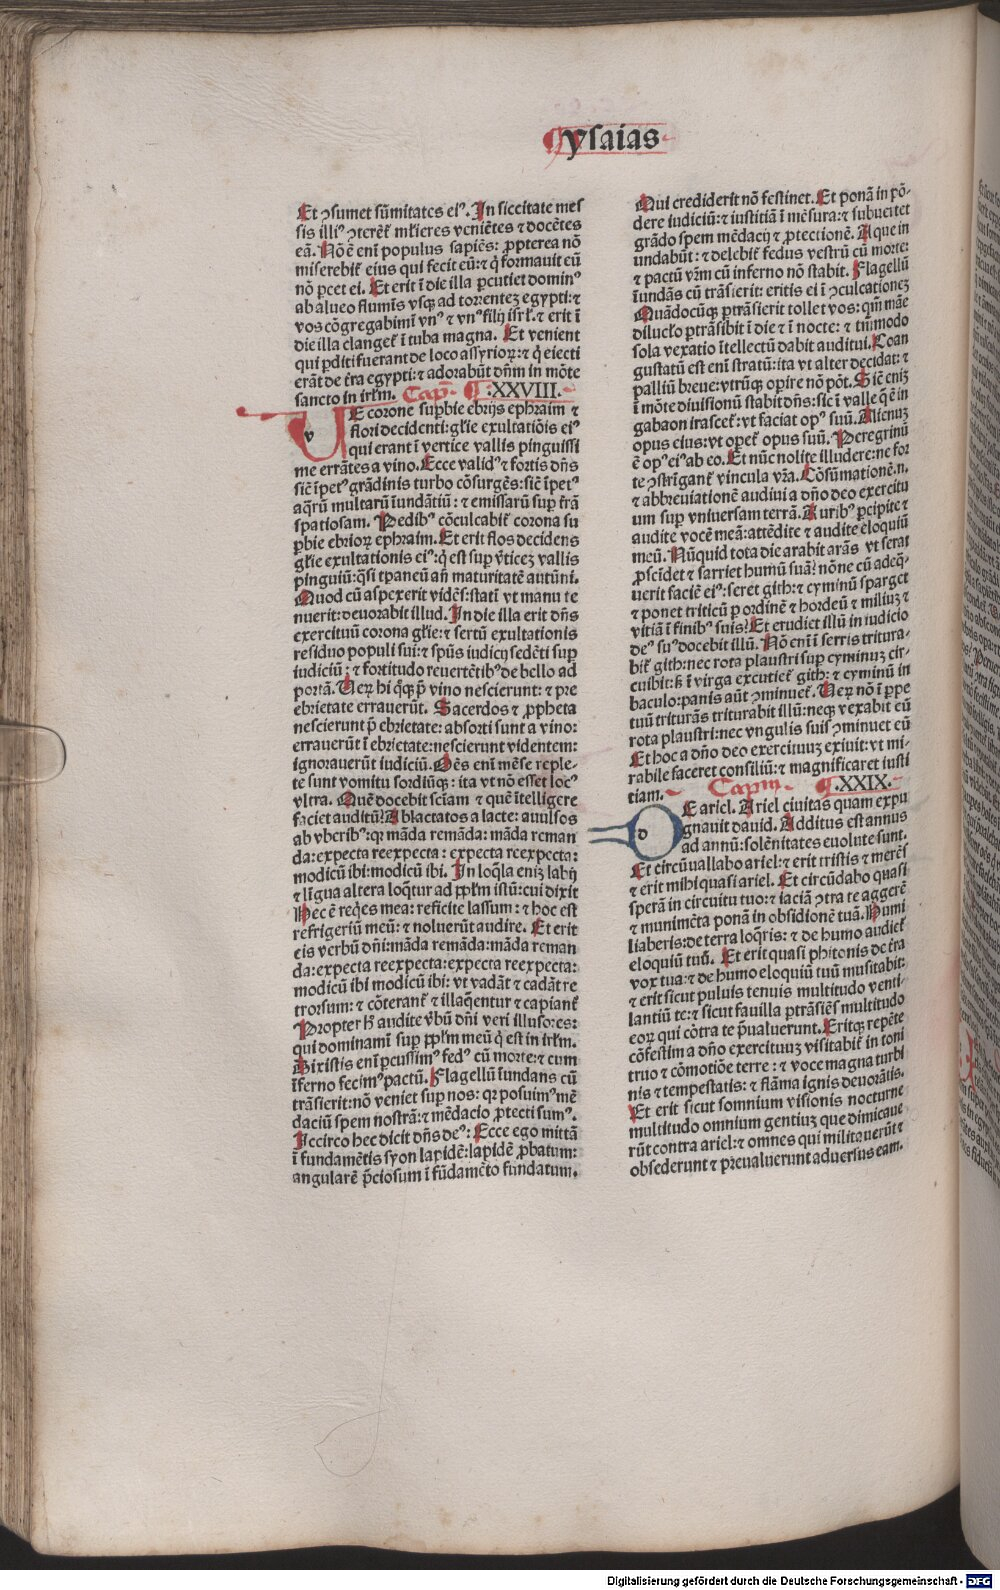 ysaias
Et ꝯsumet sūmitates eiꝰ. In siccitate mes
sis illiꝰ ꝯterēt̄ mƚieres veniētes ⁊ docētes
eā. Nō ē eni populus sapiēs: ꝓpterea nō
miserebit̄ eius qui fecit eū: ⁊ q̇ formauit eū
nō ꝑcet ei. Et erit ī die illa ꝑcutiet dominꝰ
ab alueo fluminis vsqꝫ ad torrentez egypti: ⁊
vos cōgregabimī vnꝰ ⁊ vnꝰ filij isrƚ. ⁊ erit ī
die illa clanget̄ ī tuba magna. Et venient
qui ꝑditi fuerant de loco assyrioꝝ: ⁊ q̇ eiecti
erāt de t̄ra egypti: ⁊ adorabūt dn̄m in mōte
sancto in irƚm. Capm̄ .XXVIII.
vE corone suꝑbie ebrijs ephraim ⁊
flori decidenti: gƚie exultatiōis eiꝰ
qui erant ī vertice vallis pinguissi
me errātes a vino. Ecce validꝰ ⁊ fortis dn̄s
sic̄ īpetꝰ grādinis turbo cōfurgēs: sic̄ īpetꝰ
aq̄rū multarū īundātiū: ⁊ emissarū suꝑ t̄rā
spatiosam. Pedibꝰ cōculcabit̄ corona su
ꝑbie ebrioꝝ ephraim. Et erit flos decidens
gƚie exultationis eiꝰ: q̇ est suꝑ v̄ticez vallis
pinguiū: q̄si tꝑaneū an̄ maturitatē autūni.
Quod cū aspexerit vidēs: statī vt manu te
nuerit: deuorabit illud. In die illa erit dn̄s
exercituū corona gƚie: ⁊ sertū exultationis
residuo populi sui: ⁊ spūs iudicij sedēti suꝑ
iudiciū: ⁊ fortitudo reuertētibꝰ de bello ad
portā. Veꝝ hi q̄qꝫ p̄ vino nescierunt: ⁊ pre
ebrietate errauerūt. Sacerdos ⁊ ꝓpheta
nescierunt p̄ ebrietate: absorti sunt a vino:
errauerūt ī ebrietate: nescierunt videntem:
ignorauerūt iudiciū. Oēs enī mēse reple-
te sunt vomitu sordiūqꝫ: ita vt nō esset locꝰ
vltra. Quē docebit sciam ⁊ quē ītelligere
faciet auditū? Ablactatos a lacte: auulsos
ab vberibꝰ: qꝛ māda remāda: māda reman
da: expecta reexpecta: expecta reexpecta:
modicū ibi: modicū ibi. In loq̄la eniꝫ labij
⁊ līgua altera loq̄tur ad ꝑpƚm istū: cui dixit
Hec ē req̄es mea: reficite lassum: ⁊ hoc est
refrigeriū meū: ⁊ noluerūt audire. Et erit
eis verbū dn̄i: māda remāda: māda reman
da: expecta reexpecta: expecta reexpecta:
modicū ibi modicū ibi: vt vadāt ⁊ cadāt re
trorsum: ⁊ cōterant̄ ⁊ illaq̄entur ⁊ capiant̄
Propter h̄ audite v̄bū dn̄i veri illusores:
qui dominamī suꝑ ꝑpƚm meū q̇ est in irƚm.
Dixistis enī ꝑcussimꝰ fedꝰ cū morte: ⁊ cum
īferno fecimꝰ pactū. Flagellū īundans cū
trāsierit: nō veniet suꝑ nos: qꝛ posuimꝰ mē
daciū spem nostrā: ⁊ mēdacio ꝓtecti sumꝰ.
Iccirco hec dicit dn̄s deꝰ: Ecce ego mittā
ī fundamētis syon lapidē: lapidē ꝓbatum:
angularē p̄ciosum ī fūdamēto fundatum.
Qui crediderit nō festinet. Et ponā in pō-
dere iudiciū: ⁊ iustitiā ī mēsura: ⁊ subuertet
grādo spem mēdacij ⁊ ꝓtectionē. Aque in
undabūt: ⁊ delebit̄ fedus vestrū cū morte:
⁊ pactū vr̄m cū inferno nō stabit. Flagellū
īundās cū trāsierit: eritis ei ī ꝯculcationeꝫ
Quādocūqꝫ ꝑtrāsierit tollet vos: qm̄ māe
diluclo ꝑtrāsibit ī die ⁊ ī nocte: ⁊ tm̄modo
sola vexatio ītellectū dabit auditui. Coan
gustatū est enī stratū: ita vt alter decidat: ⁊
palliū breue: vtrūqꝫ oꝑire nō pōt. Sic̄ eniꝫ
ī mōte diuisionū stabit dn̄s: sic̄ ī valle q̄ ē in
gabaon irascet̄: vt faciat opꝰ suū. Alienuꝫ
opus eius: vt oꝑet̄ opus suū. Peregrinū
ē opꝰ eiꝰ ab eo. Et nūc nolite illudere: ne for
te ꝯstrīgant̄ vincula vr̄a. Cōsūmationē.n.
⁊ abbreuiationē audiui a dn̄o deo exercitu
um suꝑ vniuersam terrā. Auribꝰ ꝑcipite ⁊
audite vocē meā: attēdite ⁊ audite eloquiū
meū. Nūquid tota die arabit arās vt serat
ꝓscīdet ⁊ sarriet humū suā? nōne cū adeq̄-
uerit faciē eiꝰ: seret gith: ⁊ cyminū sparget
⁊ ponet triticū ꝑ ordinē ⁊ hordeū ⁊ miliuꝫ ⁊
vitiā ī finibꝰ suis? Et erudiet illū in iudicio
deꝰ suꝰ docebit illū. Nō enī ī serris tritura-
bit̄ gith: nec rota plaustri suꝑ cyminuꝫ cir-
cuibit: ß ī virga excutiet̄ gith: ⁊ cyminū in
baculo: panis aūt ꝯminuet̄. Veꝝ nō ī ꝑpe
tuū triturās triturabit illū: neqꝫ vexabit eū
rota plaustri: nec vngulis suis ꝯminuet eū
Et hoc a dn̄o deo exercituuꝫ exiuit: vt mi-
rabile faceret consiliū: ⁊ magnificaret iusti
tiam. Capm̄ .XXIX.
dE ariel. Ariel ciuitas quam expu
gnauit dauid. Additus est annus
ad annū: solēnitates euolute sunt.
Et circūuallabo ariel: ⁊ erit tristis ⁊ merēs
⁊ erit mihi quasi ariel. Et circūdabo quasi
sperā in circuitu tuo: ⁊ iaciā ꝯtra te aggerē
⁊ munimēta ponā in obsidionē tuā. Humi
liaberis: de terra loq̄ris: ⁊ de humo audiet̄
eloquiū tuū. Et erit quasi phitonis de t̄ra
vox tua: ⁊ de humo eloquiū tuū musitabit:
⁊ erit sicut puluis tenuis multitudo venti-
lantiū te: ⁊ sicut fauilla ꝑtrāsiēs multitudo
eoꝝ qui cōtra te p̄ualuerunt. Eritqꝫ repēte
cōfestim a dn̄o exercituuꝫ visitabit̄ in toni
truo ⁊ cōmotiōe terre: ⁊ voce magna turbi
nis ⁊ tempestatis: ⁊ flāma ignis deuorātis.
Et erit sicut somnium visionis nocturne
multitudo omnium gentiuꝫ que dimicaue
rūt contra ariel: ⁊ omnes qui militauerūt ⁊
obsederunt ⁊ preualuerunt aduersus eam.
Digitalisierung gefördert durch die Deutsche Forschungsgemeinschaft - DFG